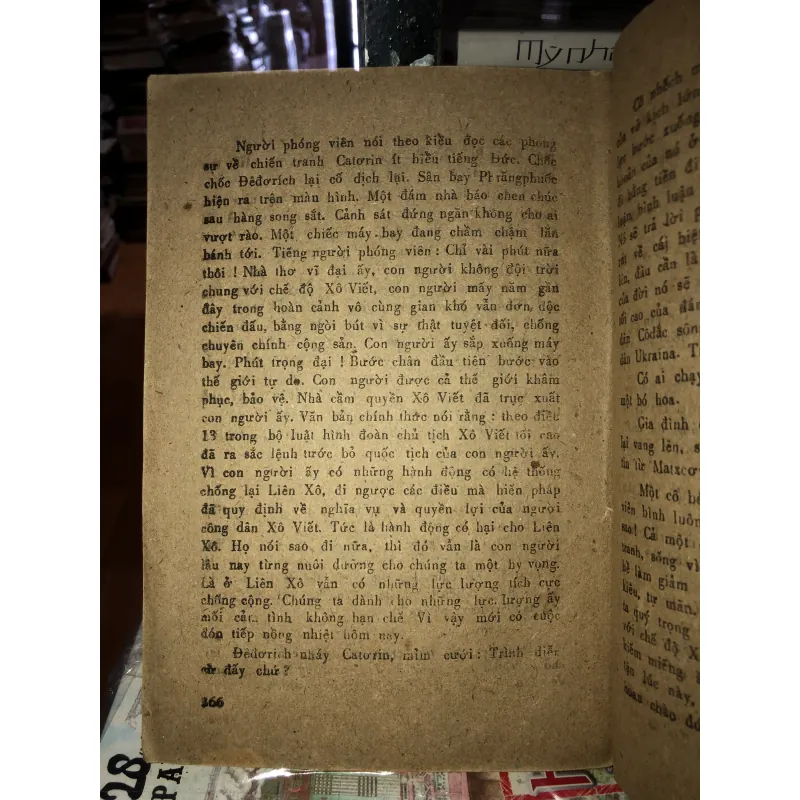 Mỹ nhâ
Người phóng viên nói theo kiều đọc các phóng
sự về chiến tranh Catơrin ít hiều tiếng Đức. Chốc
chốc Đêđơrích lại cố dịch lại. Sân bay Phrăngphuốc
hiện ra trên màn hình. Một đám nhà báo chen chúc
sau hàng song sắt. Cảnh sát đứng ngăn không cho ai
vượt rào. Một chiếc máy bay đang chầm chậm lăn
bánh tới. Tiếng người phóng viên : Chỉ vài phút nữa
thôi ! Nhà thơ vĩ đại ấy, con người không đội trời
chung với chế độ Xô Viết, con người mấy năm gần
đây trong hoàn cảnh vô cùng gian khó vẫn đơn độc
chiến đấu, bằng ngòi bút vì sự thật tuyệt đối, chống
chuyên chính cộng sản. Con người ấy sắp xuống máy
bay. Phút trọng đại ! Bước chân đầu tiên bước vào
thế giới tự do. Con người được cả thế giới khâm
phục, bảo vệ. Nhà cầm quyền Xô Viết đã trục xuất
con người ấy. Văn bản chính thức nói rằng : theo điều
13 trong bộ luật hình đoàn chủ tịch Xô Viết tối cao
đã ra sắc lệnh tước bỏ quốc tịch của con người ấy.
Vì con người ấy có những hành động có hệ thống
chống lại Liên Xô, đi ngược các điều mà hiến pháp
đã quy định về nghĩa vụ và quyền lợi của người
công dân Xô Viết. Tức là hành động có hại cho Liên
Xô. Họ nói sao đi nữa, thì đó vẫn là con người
lâu nay từng nuôi dưỡng cho chúng ta một hy vọng.
Là ở Liên Xô vẫn có những lực lượng tích cực
chống cộng. Chúng ta dành cho những lực lượng ấy
mối cảm tình không hạn chế Vì vậy mới có cuộc
đón tiếp nồng nhiệt hôm nay.
Đêđơrich nháy Catơrin, mỉm cười : Trình diễn
cừ đấy chứ ?
366
Có nhếch m
của vở kịch
bước xuống
của nó ở
đi băng tiến đi
luận, bình luận
Nó sẽ trả lời
nói về cái biệt
đâu cần là
của đời nó sẽ
tối cao của đám
dân Côdắc sông
dân Ukraina. T
Có ai chạy
một bó hoa.
Gia đình
lại vang lên,
tin từ Matxcơ
Một cô bé
tiên bình luôn
sao! Cả một
tranh, sống vì
hề làm giảm
kiêu, tự mãn.
ta quý trọng
với chế độ X
kiếm miếng
lúc này,
quan chào đó
28
PA